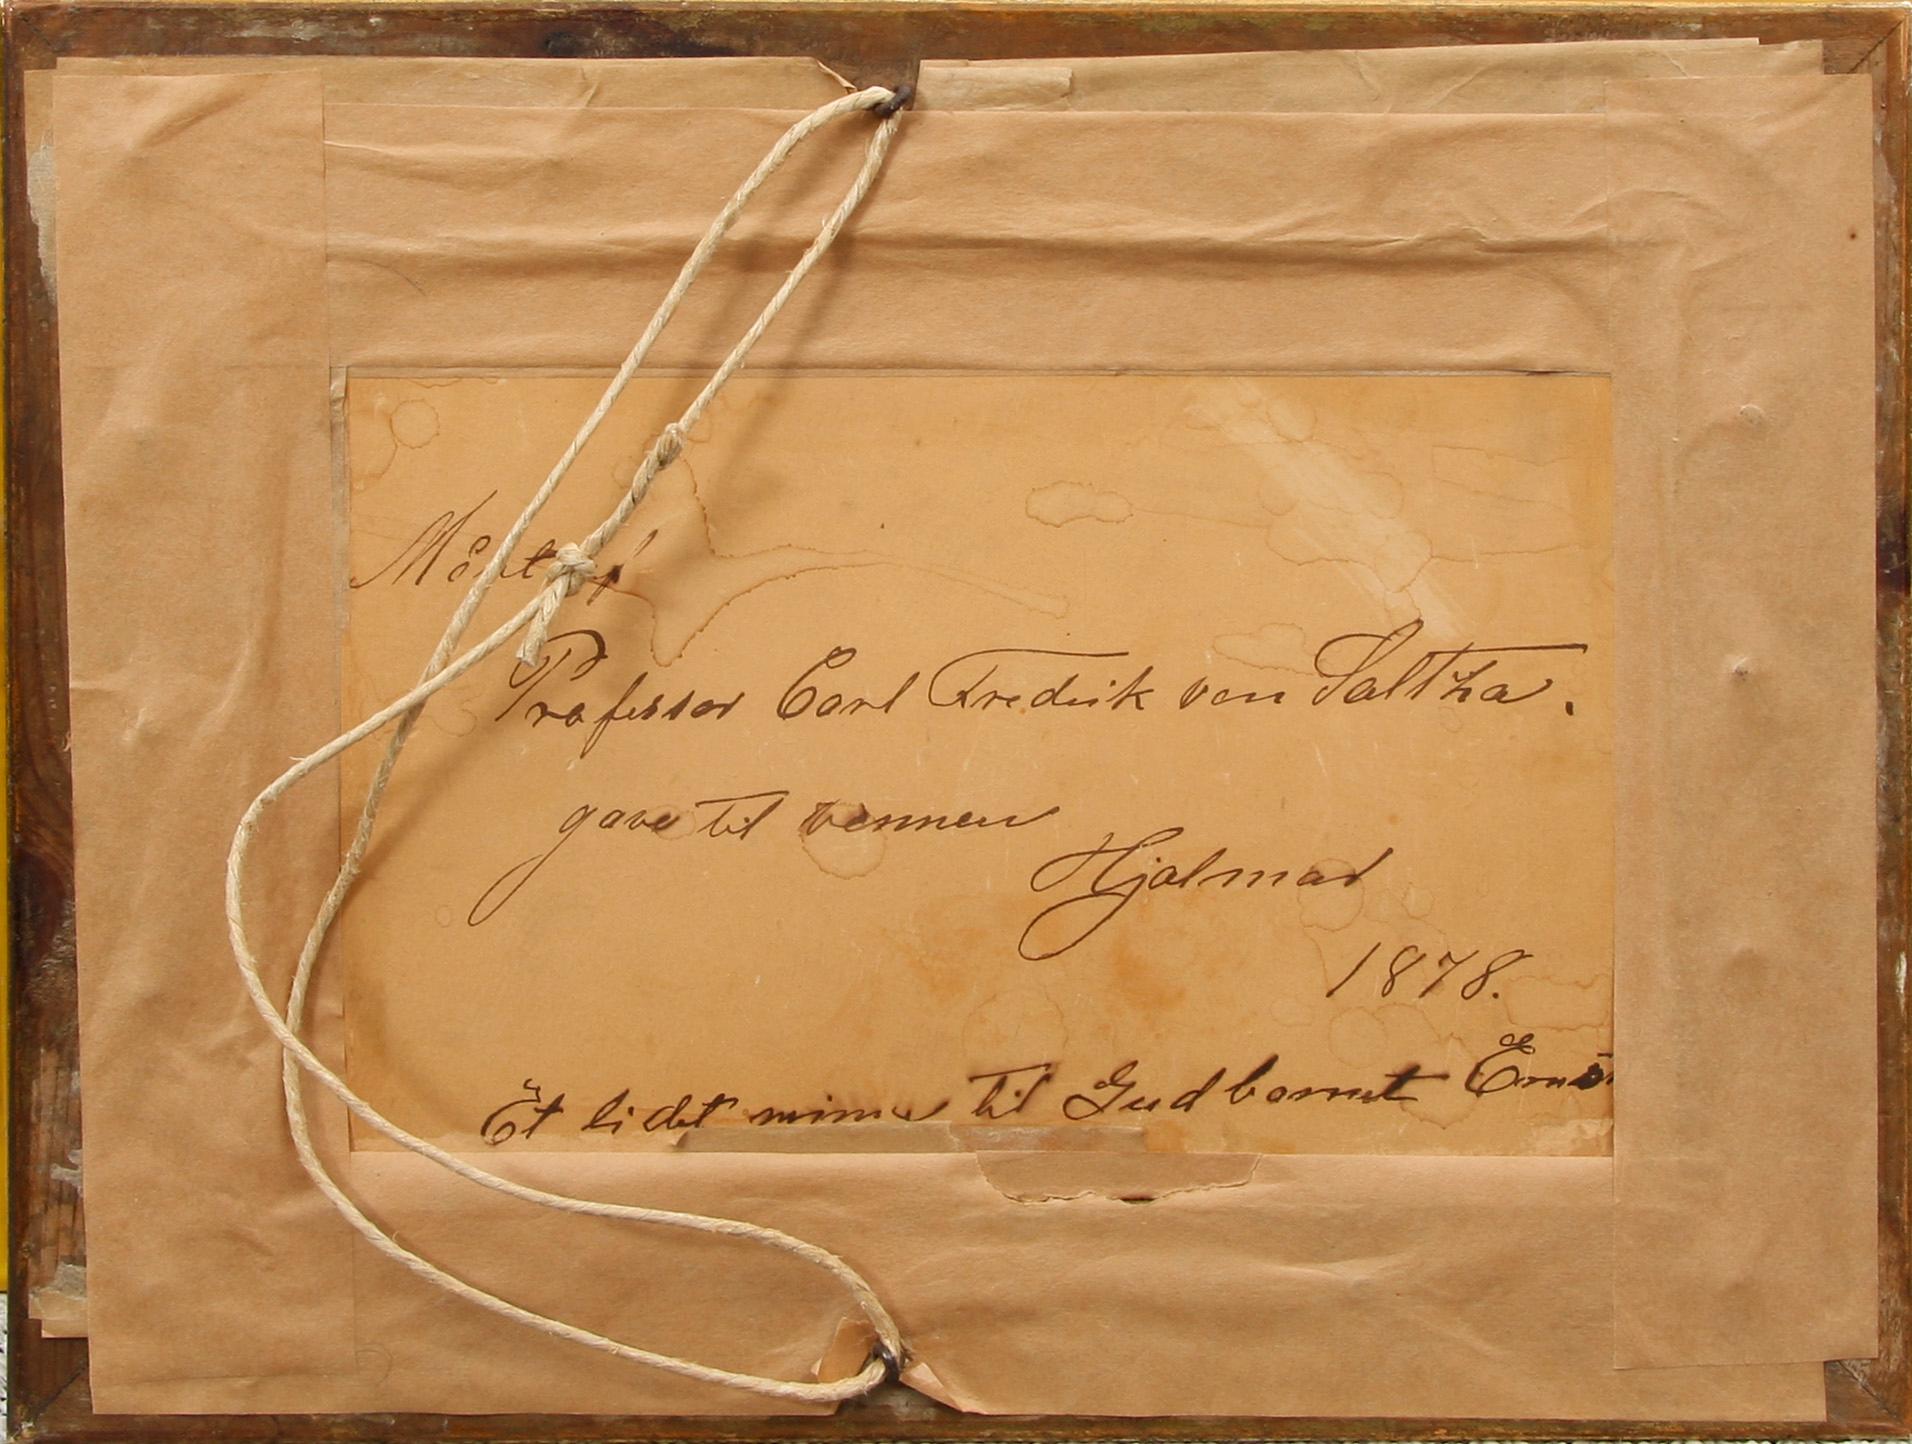 Professor Carl Fredrik von Saltza.
gave til vennen
Hjalmar
1878.
Et lidet minne til Gudbarnet